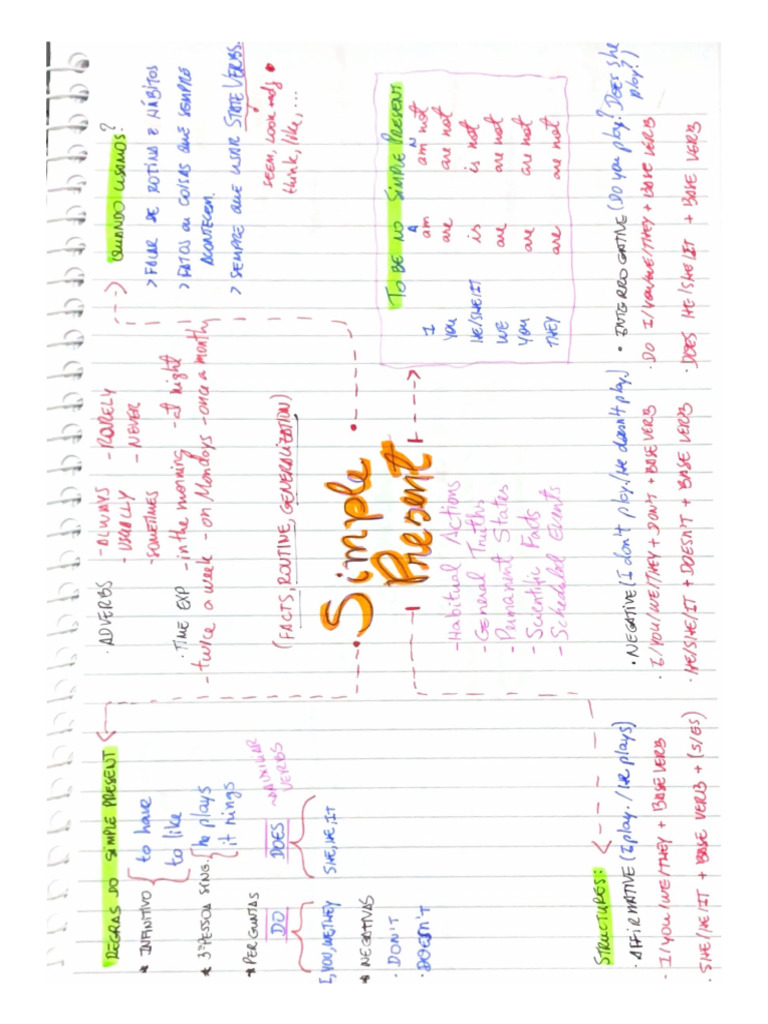 REGRAS DO SIMPLE PRESENT
* INFINITIVO { to have
to like
* 3ª PESSOA SING. { he plays
it rings
* PERGUNTAS
DO DOES → AUXILIAR VERBS
I, YOU, WE, THEY SHE, HE, IT
* NEGATIVAS
· DON'T
· DOESN'T
· ADVERBS - ALWAYS - RARELY
- USUALLY - NEVER
- SOMETIMES
· TIME EXP - in the morning - at night
- twice a week - on Mondays - once a month
(FACTS, ROUTINE, GENERALIZATION)
QUANDO USAMOS?
> FALAR DE ROTINA E HÁBITOS
> FATOS OU COISAS QUE SEMPRE
ACONTECEM.
> SEMPRE QUE USAR STATE VERBS.
SEEM, LOOK + adj
think, like, ...
Simple
Present
- Habitual Actions
- General Truths
- Permanent States
- Scientific Facts
- Scheduled Events
TO BE NO SIMPLE PRESENT
A N
I am am not
YOU are are not
HE/SHE/IT is is not
WE are are not
YOU are are not
THEY are are not
STRUCTURES:
· AFFIRMATIVE (I play. / He plays)
· I/YOU/WE/THEY + BASE VERB
· SHE/HE/IT + BASE VERB + (S/ES)
· NEGATIVE (I don't play. / He doesn't play.)
· I/YOU/WE/THEY + DON'T + BASE VERB
· HE/SHE/IT + DOESN'T + BASE VERB
· INTERROGATIVE (Do you play? Does she
play?)
· DO I/YOU/WE/THEY + BASE VERB
· DOES HE/SHE/IT + BASE VERB